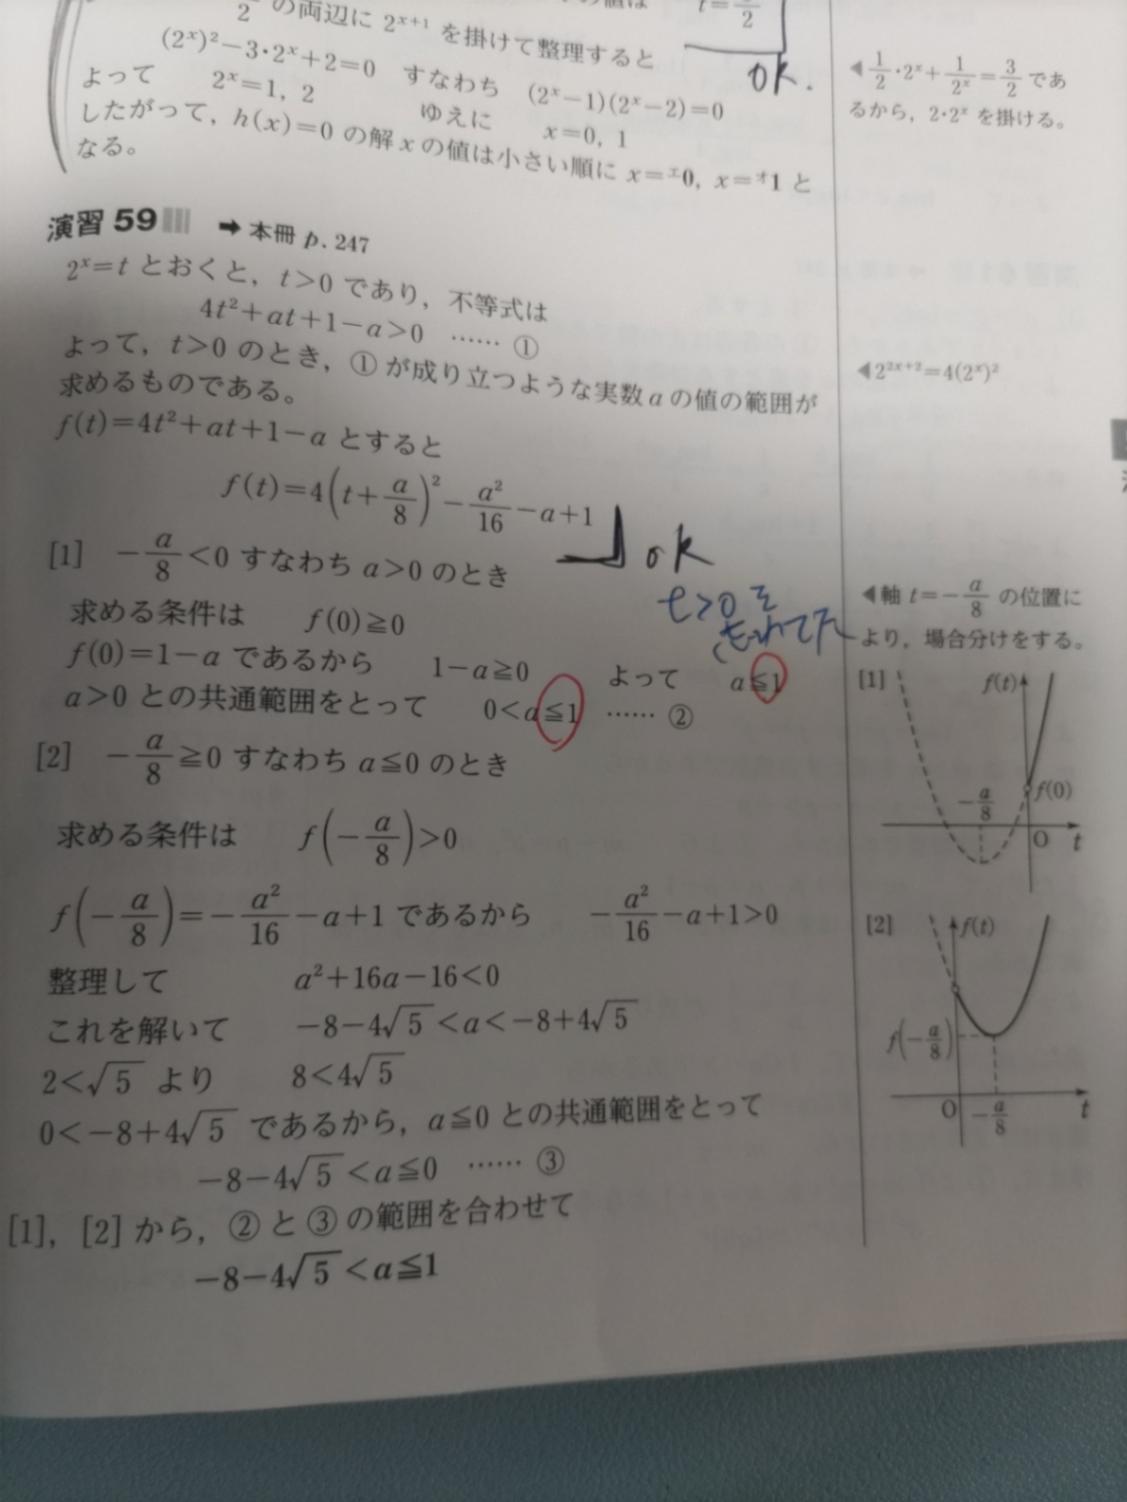 の両辺に 2^{x+1} を掛けて整理すると
t=
2
(2^x)²−3・2^x+2=0 すなわち (2^x−1)(2^x−2)=0
ok.
よって 2^x=1, 2 ゆえに x=0, 1
したがって, h(x)=0 の解 x の値は小さい順に x=ᴱ0, x=ᵒ1 と
なる。
◀1/2・2^x+1/2^x=3/2 であ
るから, 2・2^x を掛ける。
演習 59 ➡ 本冊 p. 247
2^x=t とおくと, t>0 であり, 不等式は
4t²+at+1−a>0 …… ①
よって, t>0 のとき, ① が成り立つような実数 a の値の範囲が
求めるものである。
◀2^{2x+2}=4(2^x)²
f(t)=4t²+at+1−a とすると
f(t)=4(t+a/8)²−a²/16−a+1
ok
[1] −a/8<0 すなわち a>0 のとき
t>0を
わすれてた
求める条件は f(0)≧0
f(0)=1−a であるから 1−a≧0 よって a≦1
a>0 との共通範囲をとって 0<a≦1 …… ②
◀軸 t=−a/8 の位置に
より, 場合分けをする。
[1] f(t)
f(0)
−a/8
O t
[2] −a/8≧0 すなわち a≦0 のとき
求める条件は f(−a/8)>0
f(−a/8)=−a²/16−a+1 であるから −a²/16−a+1>0
整理して a²+16a−16<0
これを解いて −8−4√5<a<−8+4√5
2<√5 より 8<4√5
0<−8+4√5 であるから, a≦0 との共通範囲をとって
−8−4√5<a≦0 …… ③
[1], [2] から, ② と ③ の範囲を合わせて
−8−4√5<a≦1
[2] f(t)
f(−a/8)
O −a/8 t